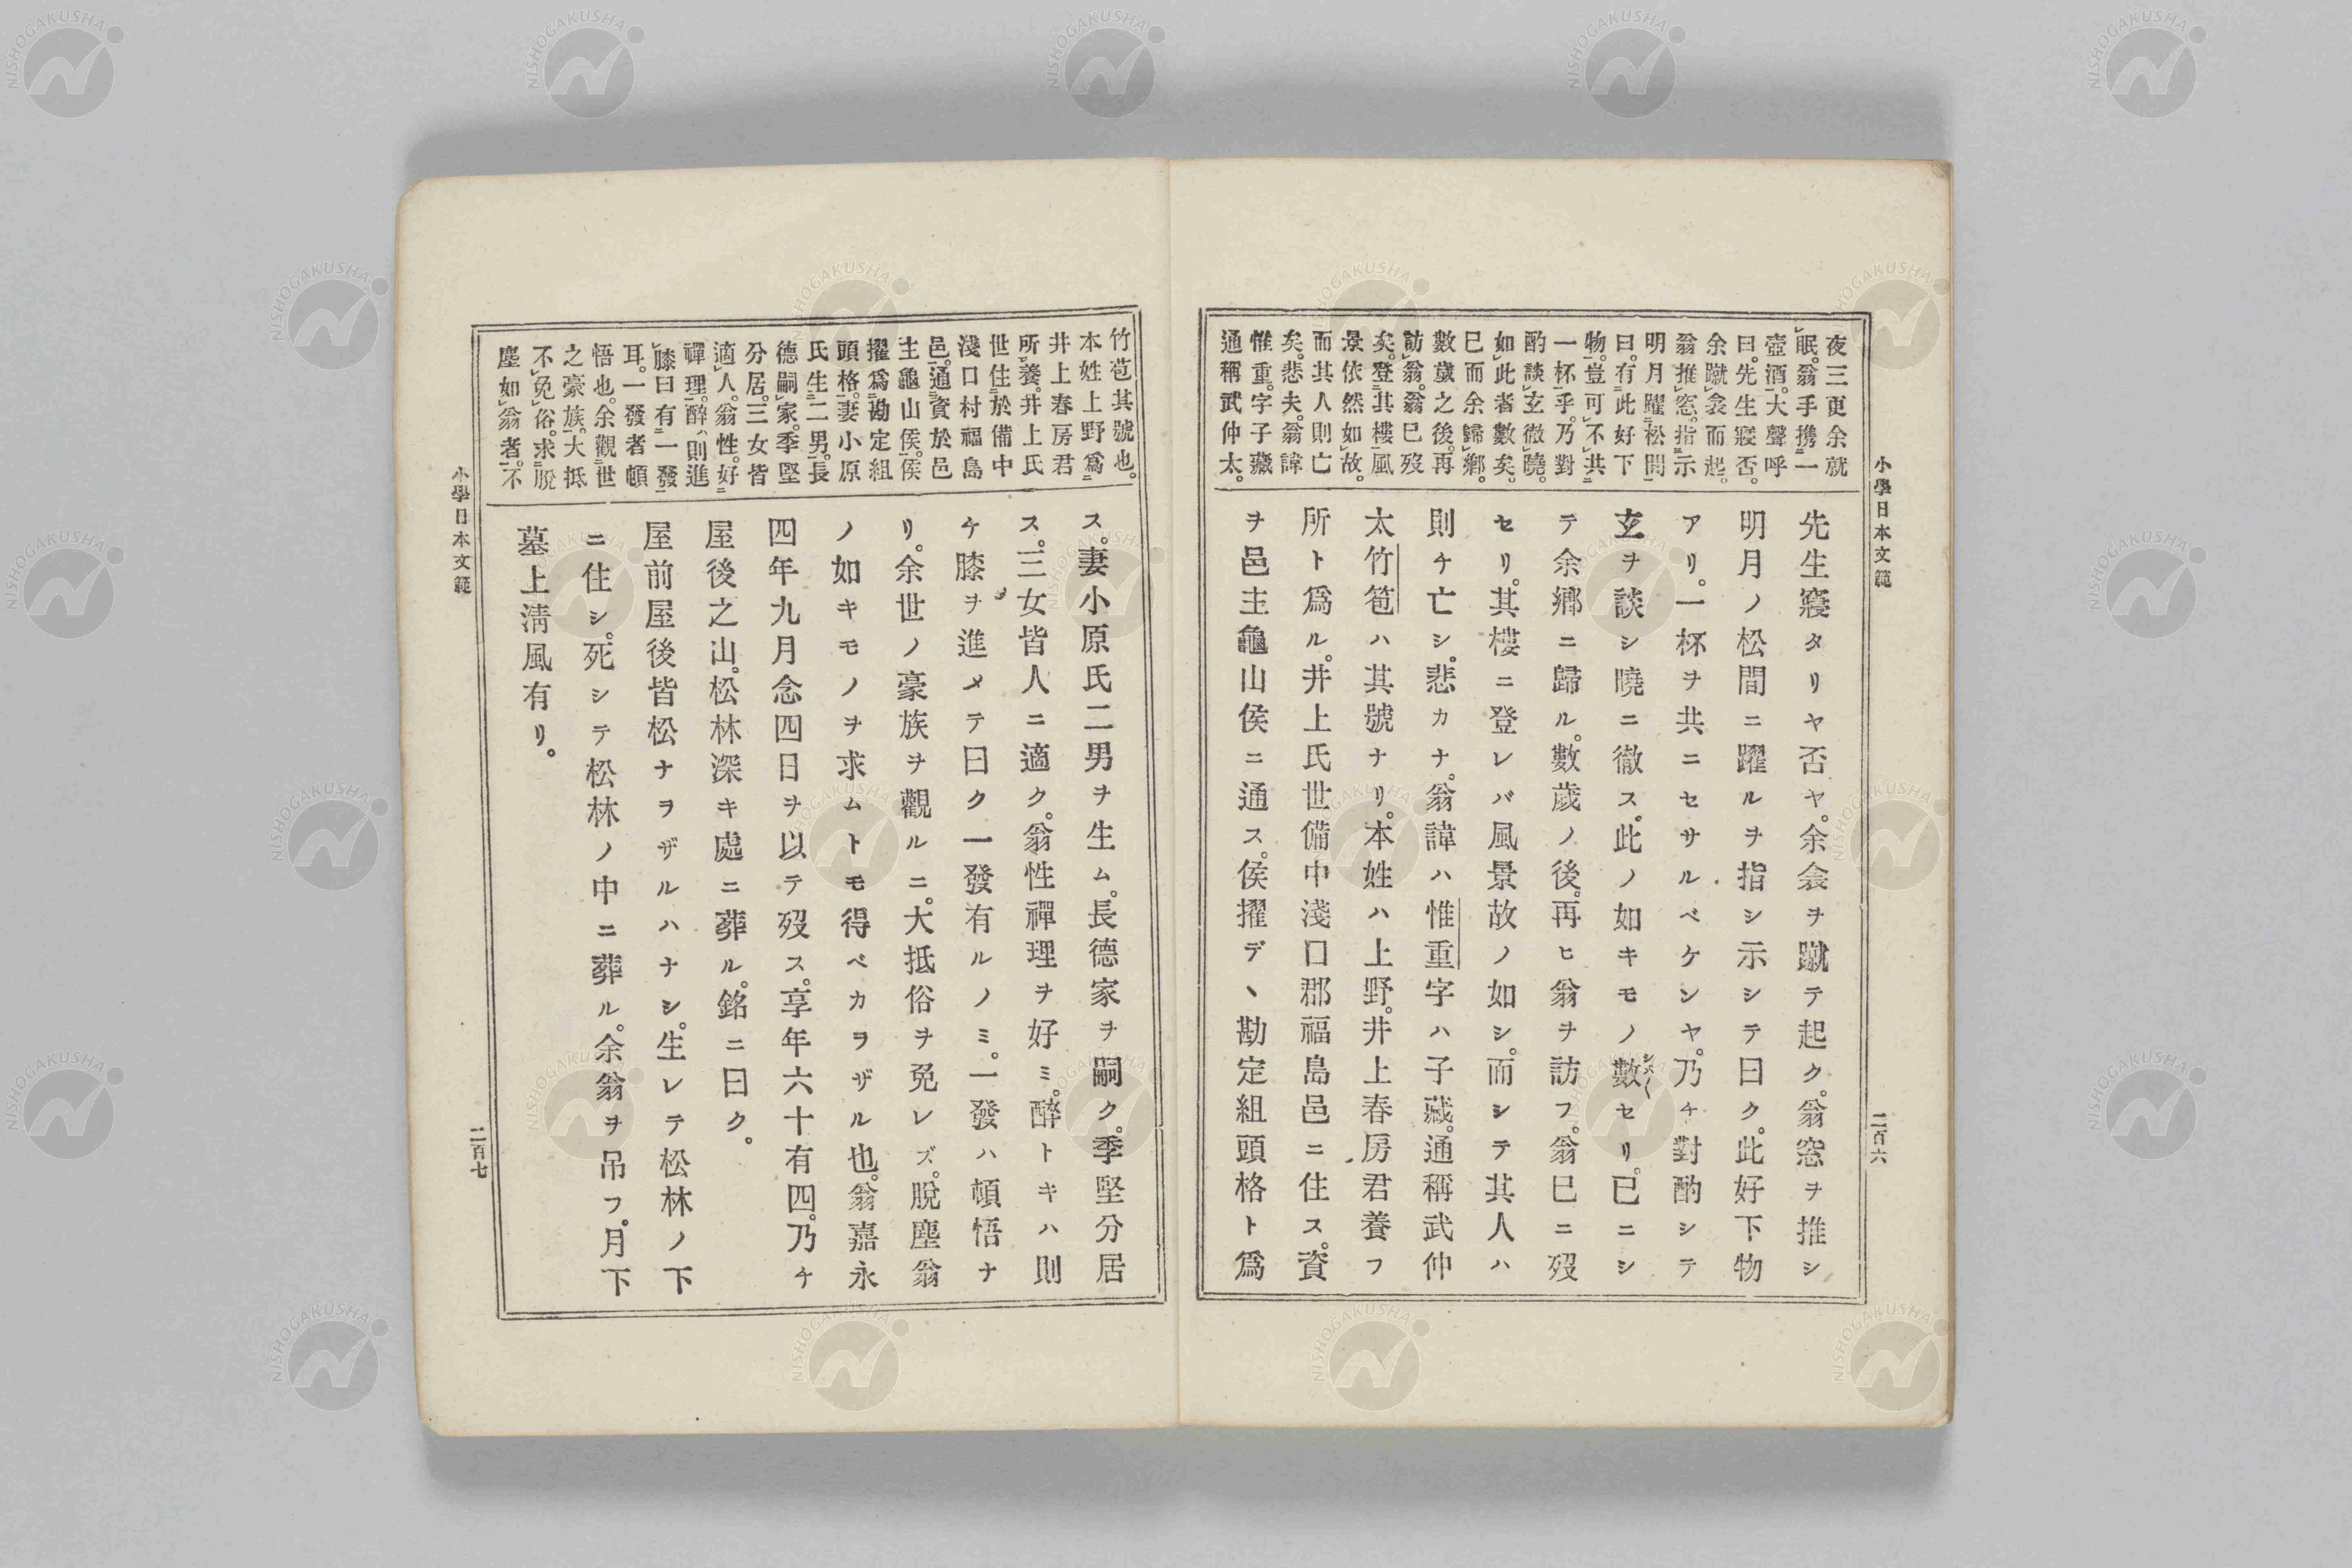 小學日本文範
二百六
夜三更余就
眠。翁手携一
壺酒。大聲呼
曰。先生寢否。
余蹴衾而起。
翁推窓。指示
明月躍松間
曰。有此好下
物。豈可不共
一杯乎。乃對
酌談玄徹曉。
如此者數矣。
已而余歸鄉。
數歲之後。再
訪翁。翁已歿
矣。登其樓風
景依然如故。
而其人則亡
矣。悲夫。翁諱
惟重。字子藏
通稱武仲太。
先生寢タリヤ否ヤ。余衾ヲ蹴テ起ク。翁窓ヲ推シ
明月ノ松間ニ躍ルヲ指シ示シテ曰ク。此好下物
アリ。一杯ヲ共ニセサルベケンヤ。乃チ對酌シテ
玄ヲ談シ曉ニ徹ス。此ノ如キモノ數セリ。已ニシ
テ余鄉ニ歸ル。數歲ノ後。再ヒ翁ヲ訪フ。翁已ニ歿
セリ。其樓ニ登レバ風景故ノ如シ。而シテ其人ハ
則チ亡シ。悲カナ。翁諱ハ惟重字ハ子藏。通稱武仲
太竹苞ハ其號ナリ。本姓ハ上野。井上春房君養フ
所ト爲ル。井上氏世備中淺口郡福島邑ニ住ス。資
ヲ邑主龜山侯ニ通ス。侯擢デヽ勘定組頭格ト爲
竹苞其號也。
本姓上野爲
井上春房君
所養。井上氏
世住於備中
淺口村福島
邑。通資於邑
主龜山侯。侯
擢爲勘定組
頭格。妻小原
氏生二男。長
德嗣家。季堅
分居。三女皆
適人。翁性。好
禪理。醉ハ則進
膝曰有一發
耳。一發者頓
悟也。余觀世
之豪族。大抵
不免俗。求脫
塵如翁者。不
ス。妻小原氏二男ヲ生ム。長德家ヲ嗣ク。季堅分居
ス。三女皆人ニ適ク。翁性禪理ヲ好ミ。醉トキハ則
チ膝ヲ進メテ曰ク一發有ルノミ。一發ハ頓悟ナ
リ。余世ノ豪族ヲ觀ルニ。大抵俗ヲ免レズ。脫塵翁
ノ如キモノヲ求ムトモ得ベカヲザル也。翁嘉永
四年九月念四日ヲ以テ歿ス。享年六十有四。乃チ
屋後之山。松林深キ處ニ葬ル。銘ニ曰ク。
屋前屋後皆松ナヲザルハナシ。生レテ松林ノ下
ニ住シ。死シテ松林ノ中ニ葬ル。余翁ヲ吊フ。月下
墓上淸風有リ。
小學日本文範
二百七